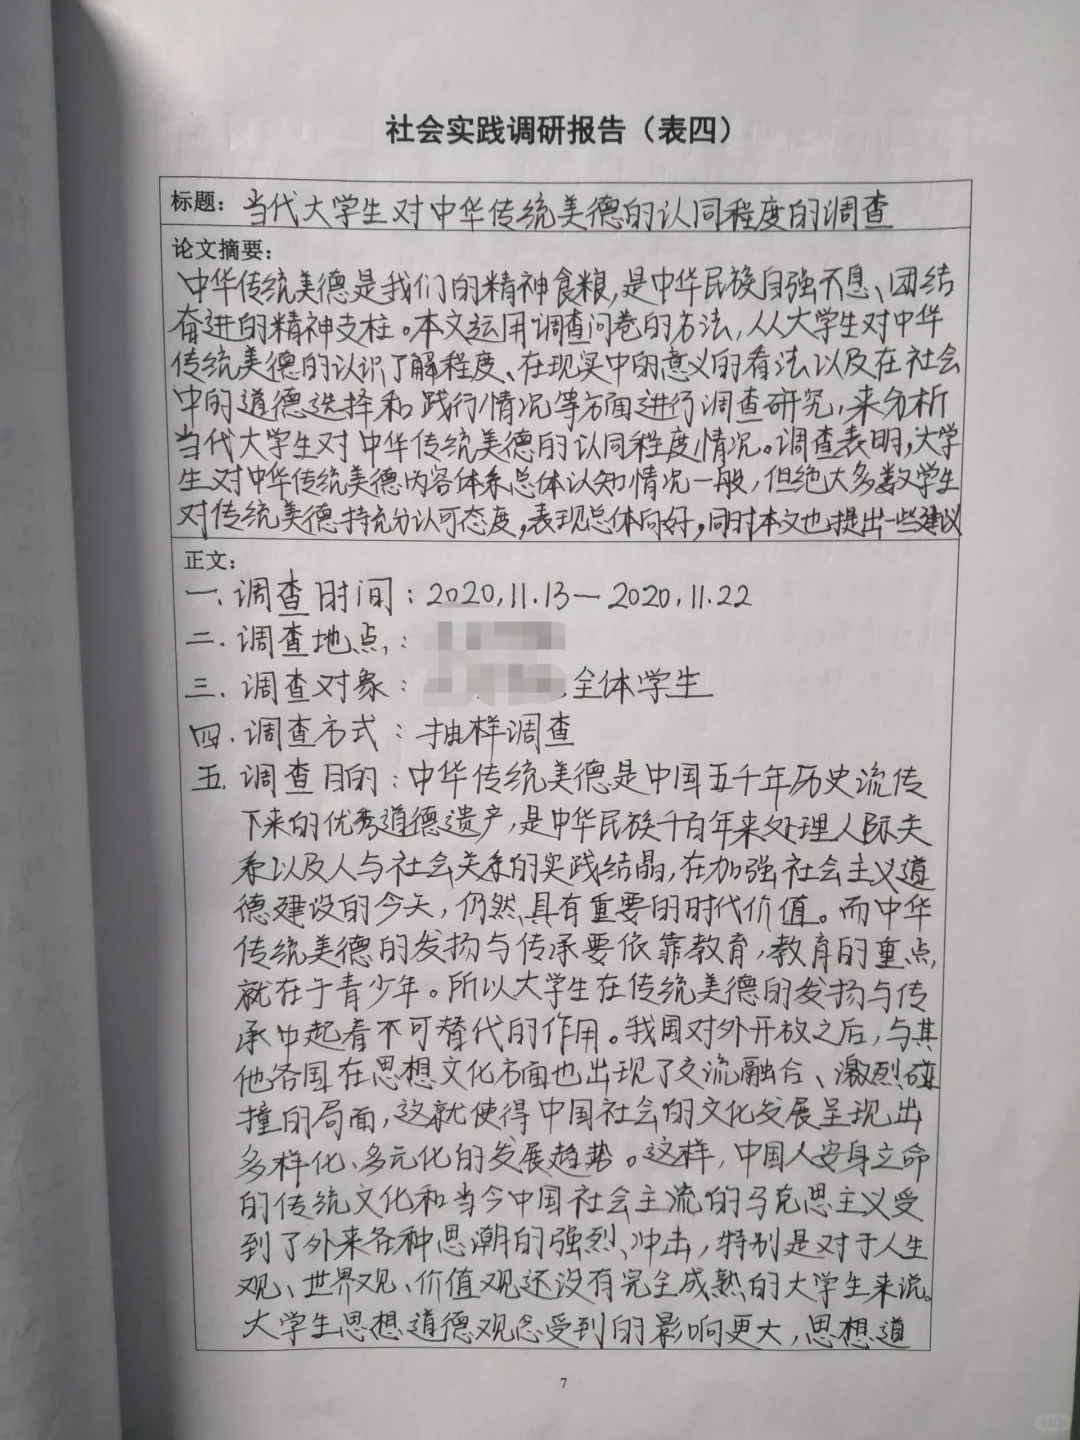 社会实践调研报告（表四）
标题：当代大学生对中华传统美德的认同程度的调查
论文摘要：
中华传统美德是我们的精神食粮，是中华民族自强不息、团结
奋进的精神支柱。本文运用调查问卷的方法，从大学生对中华
传统美德的认识了解程度、在现实中的意义的看法以及在社会
中的道德选择和践行情况等方面进行调查研究，来分析
当代大学生对中华传统美德的认同程度情况。调查表明，大学
生对中华传统美德内容体系总体认知情况一般，但绝大多数学生
对传统美德持充分认可态度，表现总体向好，同时本文也提出一些建议
正文：
一.调查时间：2020.11.13—2020.11.22
二.调查地点：
三.调查对象：全体学生
四.调查方式：抽样调查
五.调查目的：中华传统美德是中国五千年历史流传
下来的优秀道德遗产，是中华民族千百年来处理人际关
系以及人与社会关系的实践结晶，在加强社会主义道
德建设的今天，仍然具有重要的时代价值。而中华
传统美德的发扬与传承要依靠教育，教育的重点，
就在于青少年。所以大学生在传统美德的发扬与传
承中起着不可替代的作用。我国对外开放之后，与其
他各国在思想文化方面也出现了交流融合、激烈碰
撞的局面，这就使得中国社会的文化发展呈现出
多样化、多元化的发展趋势。这样，中国人安身立命
的传统文化和当今中国社会主流的马克思主义受
到了外来各种思潮的强烈冲击，特别是对于人生
观、世界观、价值观还没有完全成熟的大学生来说。
大学生思想道德观念受到的影响更大，思想道
7